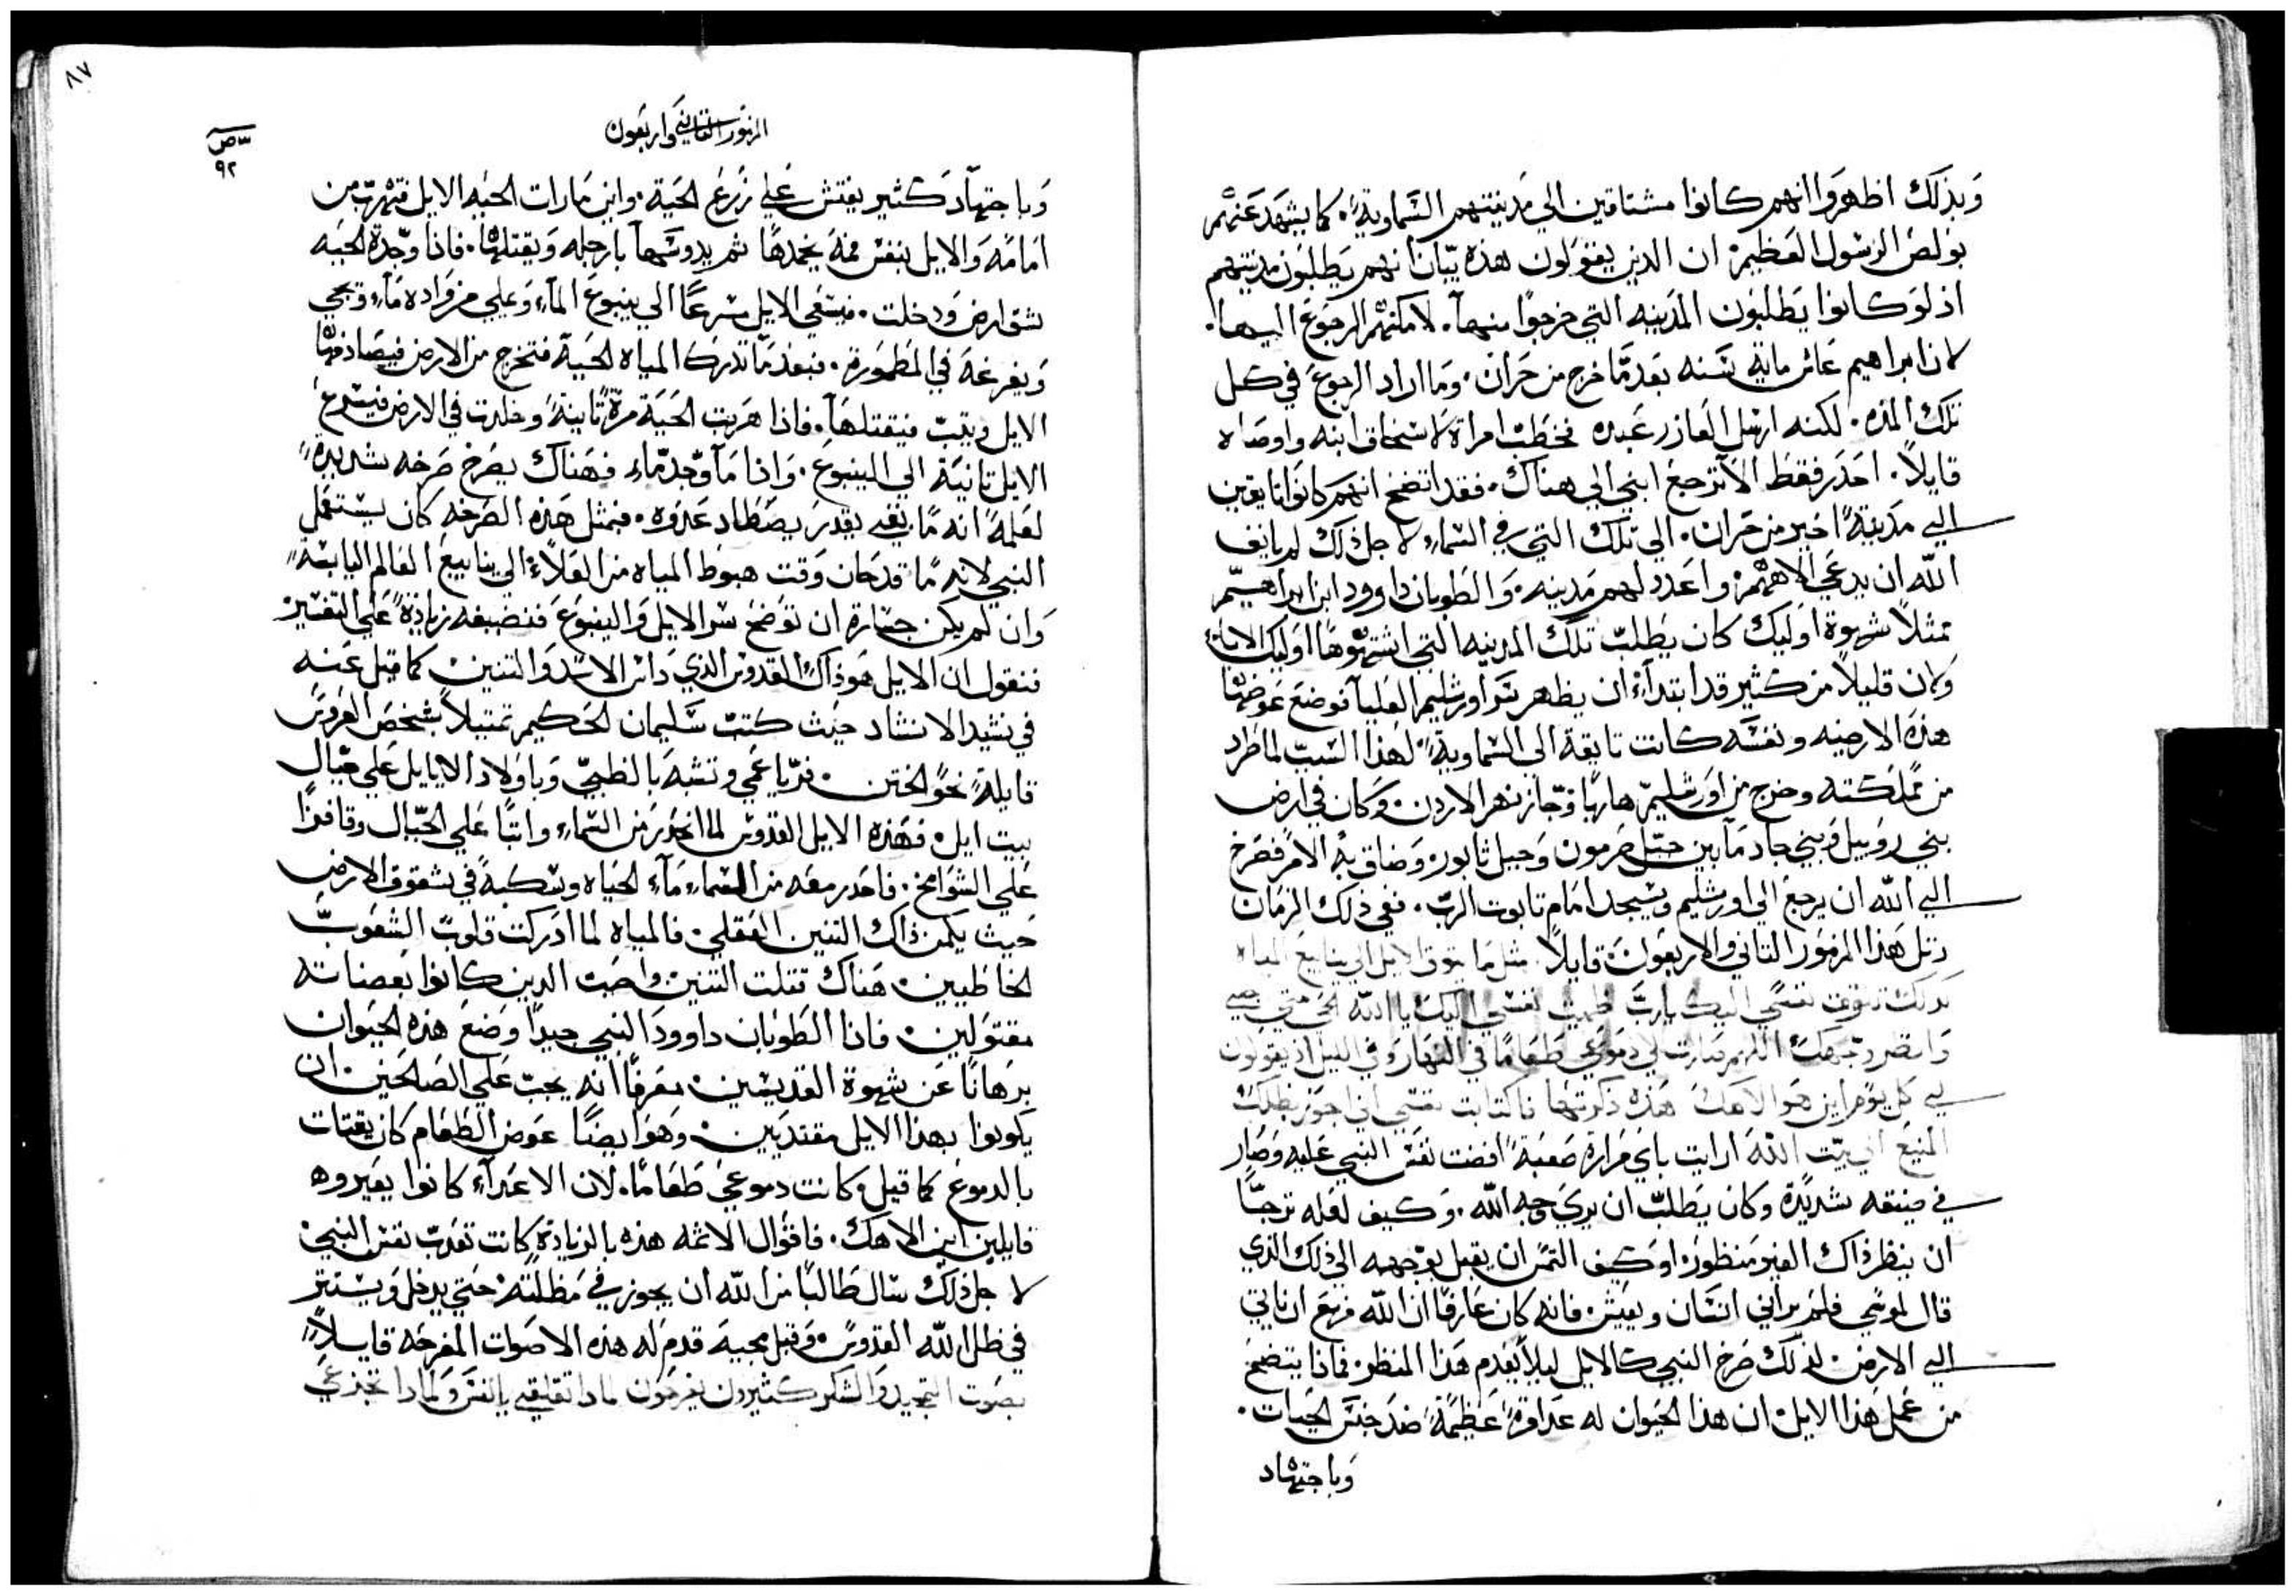 وبذلك اظهروا انهم كانوا مشتاقين الي مدينتهم السماوية. كما يشهد عنهم
بولص الرسول العظيم: ان الذين يقولون هذه بيّان انهم يطلبون مدينتهم
اذ لو كانوا يطلبون المدينه التي خرجوا منها. لامكنهم الرجوع اليها.
لان ابراهيم عاش ماية سنه بعد ما خرج من حران. وما اراد الرجوع في كل
تلك المده. لكنه ارسل العازر عبده فخطب امراة لاسحاق ابنه واوصاه
قايلاً. احذر فقط الا ترجع ابني الي هناك. فقد اتضح انهم كانوا تايقين
الي مدينة اخير من حران. الي تلك التي في السماء لاجل ذلك لم يانف
الله ان يدعي الاههم: واعدد لهم مدينه. والطوبان داوود ابن ابراهيم
ممثلاً شهوة اوليك كان يطلب تلك المدينه التي اشتهوها اوليك الابا:
وكان قليلاً من كثير قد ابتداء ان يظهر اورشليم العليا فوضع عوضها
هذه الارضيه ونفسه كانت تايقة الي السماوية. لهذا السبب لما طرد
من مملكته وخرج من اورشليم هاربًا وجاز نهر الاردن. وكان في ارض
بني روبيل وبني جاد ما بين جبل حرمون وجبل ثابور. وضاق به الامر فصرخ
الي الله ان يرجع الي اورشليم ويسجد امام تابوت الرب. ففي ذلك الزمان
رتل هذا المزمور الثاني والاربعون قايلاً. مثل ما يتوق الايل الي ينابيع المياه
كذلك تتوق نفسي اليك يا رب ظميت نفسي اليك يا الله الحي متي اجي
وانظر وجهك اللهم صارت لي دموعي طعامًا في النهار وفي الليل اذ يقولون
لي كل يوم اين هو الاهك هذه ذكرتها فاكتابت نفسي اني اجوز بظلك
المنيع الي بيت الله ارايت باي مرارة صعبة افضت نفس النبي عليه وصار
في ضيقه شديدة وكان يطلب ان يري وجه الله. وكيف لعله ترجّا
ان ينظر ذاك الغير منظور: او كيف التمس ان يقبل بوجهه الي ذلك الذي
قال لموسي فلم يراني انسان ويعيش. فانه كان عارفًا ان الله مزمع ان ياتي
الي الارض. لذلك صرخ النبي كالايل ليلاً يعدم هذا المنظر. فماذا يتضح
من عمل هذا الايل. ان هذا الحيوان له عداوة عظيمة ضد جنس الحيات.
وباجتهاد
٨٧
المزمور الثاني واربعون
ص
٩٢
وباجتهاد كثير يفتش علي زرع الحية. واين ما رات الحيه الايل فتهرب من
امامه والايل بنفس فمه يخمدها ثم يدوسها بارجله ويقتلها. فاذا وجدة الحيه
شق ارض ودخلت. فيسعي الايل مسرعًا الي ينبوع الماء ويملي مزواده ماء ويجي
ويفرغه في المطمورة. فبعد ما تدرك المياه الحية فتخرج من الارض فيصادفها
الايل ويثب فيقتلها. فاذا هربت الحية مرة ثانية ودخلت في الارض فيسرع
الايل ثانية الي الينبوع. واذا ما وجد ماء فهناك يصرخ صرخه شديدة
لعلمه انه ما بقي يقدر يصطاد عدوه. فبمثل هذه الصرخه كان يستعمل
النبي لانه ما قد حان وقت هبوط المياه من العلاء الي ينابيع العالم اليابسة
وان لم يكن جسارة ان توضح سر الايل والينبوع فنضيفه زيادة علي التفسير
فنقول ان الايل هو ذاك القدوس الذي داس الاسد والتنين كما قيل عنه
في نشيد الانشاد حيث كتب سليمان الحكيم تمثيلاً بشخص العروس
قايلة نحو الختن. فر يا عمي وتشبه بالظبي وباولاد الايايل علي جبال
بيت ايل. فهذه الايل القدوس لما انحدر من السماء واثبًا علي الجبال وقافزًا
علي الشوامخ. فاحدر معه من السماء ماء الحياه وسكبه في شقوق الارض
حيث يكمن ذاك التنين العقلي. فالمياه لما ادركت قلوب الشعوب
الخاطيين. هناك قتلت التنين واحيت الدين كانوا بعضاته
مقتولين. فاذا الطوبان داوود النبي جيدًا وضع هذه الحيوان
برهانًا عن شهوة القديسين. معرفًا انه يجب علي الصالحين. ان
يكونوا بهذا الايل مقتديين. وهو ايضًا عوض الطعام كان يقتات
بالدموع كما قيل. كانت دموعي طعامًا. لان الاعداء كانوا يعيروه
قايلين اين الاهك. فاقوال الاثمه هذه بالزيادة كانت تعذب نفس النبي:
لاجل ذلك سال طالبًا من الله ان يجوز في مظلته. حتي يدخل ويستتر
في ظل الله القدوس. وقبل مجيه قدم له هذه الاصوات المفرحه قايلاً
بصوت التمجيد والشكر كثيرون يفرحون لماذا تقلقي يا نفس ولماذا تجزعي